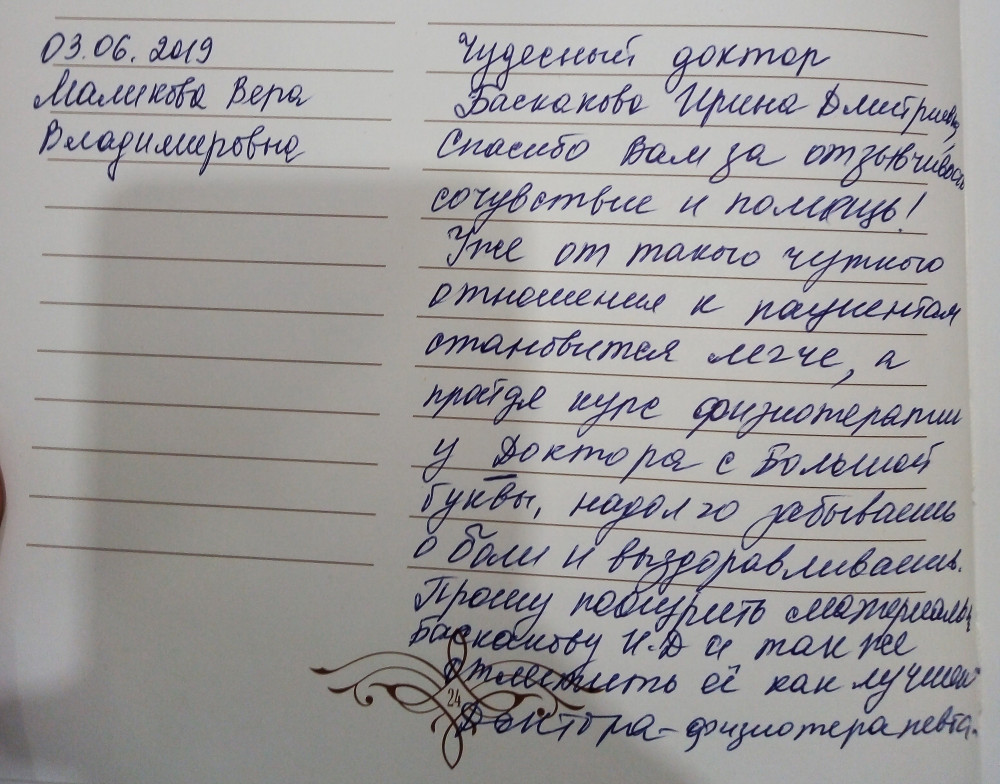 03.06.2019
Маликова Вера
Владимировна
Чудесный доктор
Баскакова Ирина Дмитриевна
Спасибо Вам за отзывчивость
сочувствие и помощь!
Уже от такого чуткого
отношения к пациентам
становится легче, а
пройдя курс физиотерапии
у Доктора с Большой
буквы, надолго забываешь
о боли и выздоравливаешь.
Прошу поощрить материально
Баскакову И.Д и так же
отметить её как лучшего
Доктора-физиотерапевта.
24